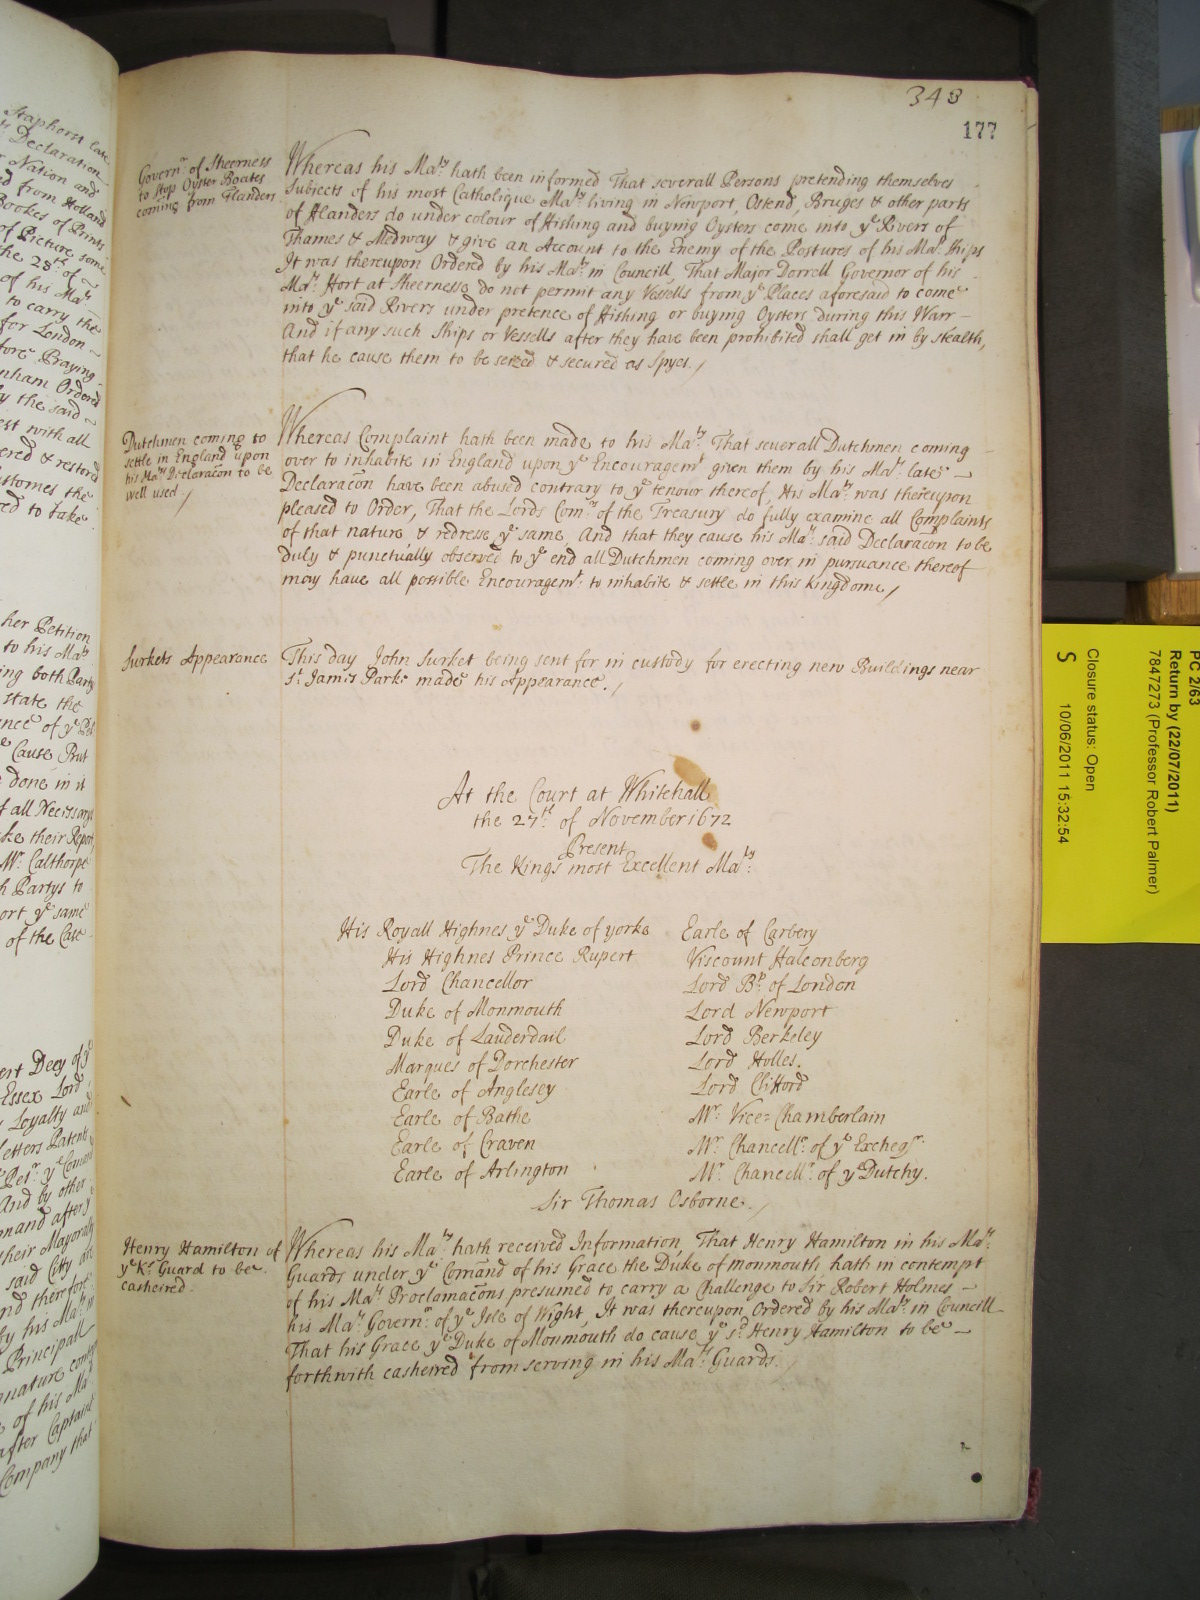 343
177
Govern.r of Sheerness
to stop Oyster Boates
coming from Flanders
Whereas his Ma.ty hath been informed That severall Persons pretending themselves
Subjects of his most Catholique Ma.ty living in Newport, Ostend, Bruges & other parts
of Flanders do under colour of Fishing and buying Oysters come into y.e Rivers of
Thames & Medway & give an Account to the Enemy of the Postures of his Ma.ts ships
It was thereupon Ordered by his Ma.ty in Councill, That Major Dorrell Governor of his
Ma.ts Fort at Sheerness, do not permit any Vessells from y.e Places aforesaid to come
into y.e said Rivers under pretence of Fishing or buying Oysters during this Warr —
And if any such Ships or Vessells after they have been prohibited shall get in by stealth,
that he cause them to be seized & secured as Spyes. /
Dutchmen coming to
settle in England upon
his Ma.ts Declaracon to be
well used /
Whereas Complaint hath been made to his Ma.ty That severall Dutchmen coming
over to inhabite in England upon y.e Encouragem.t given them by his Ma.ts late —
Declaracon have been abused contrary to y.e tenour thereof, His Ma.ty was thereupon
pleased to Order, That the Lords Com.rs of the Treasury do fully examine all Complaints
of that nature & redresse y.e same, And that they cause his Ma.ts said Declaracon to be
duly & punctually observed to y.e end all Dutchmen coming over in pursuance thereof
may have all possible Encouragem.t to inhabite & settle in this Kingdome /
Surkets Appearance
This day John Surket being sent for in custody for erecting new Buildings near
S.t James Parke made his Appearance. /
At the Court at Whitehall
the 27.th of November 1672
Present
The Kings most Excellent Ma.ty
His Royall Highnes y.e Duke of yorke Earle of Carbery
His Highnes Prince Rupert Viscount Falconberg
Lord Chancellor Lord B.p of London
Duke of Monmouth Lord Newport
Duke of Lauderdail Lord Berkeley
Marques of Dorchester Lord Holles.
Earle of Anglesey Lord Clifford
Earle of Bathe M.r Vice=Chamberlain
Earle of Craven M.r Chancell.r of y.e Excheq.r
Earle of Arlington M.r Chancell.r of y.e Dutchy.
Sir Thomas Osborne. /
Henry Hamilton of
y.e K.s Guard to be
casheired
Whereas his Ma.ty hath received Information, That Henry Hamilton in his Ma.ts
Guards under y.e Comand of his Grace the Duke of monmouth hath in contempt
of his Ma.ts Proclamacons presumed to carry a Challenge to Sir Robert Holmes —
his Ma.ts Govern.r of y.e Isle of Wight, It was thereupon Ordered by his Ma.ty in Councill
That his Grace y.e Duke of Monmouth do cause y.e s.d Henry Hamilton to be —
forthwith casheired from serving in his Ma.ts Guards. /
PC 2/63
Return by (22/07/2011)
7847273 (Professor Robert Palmer)
Closure status: Open
S 10/06/2011 15:32:54